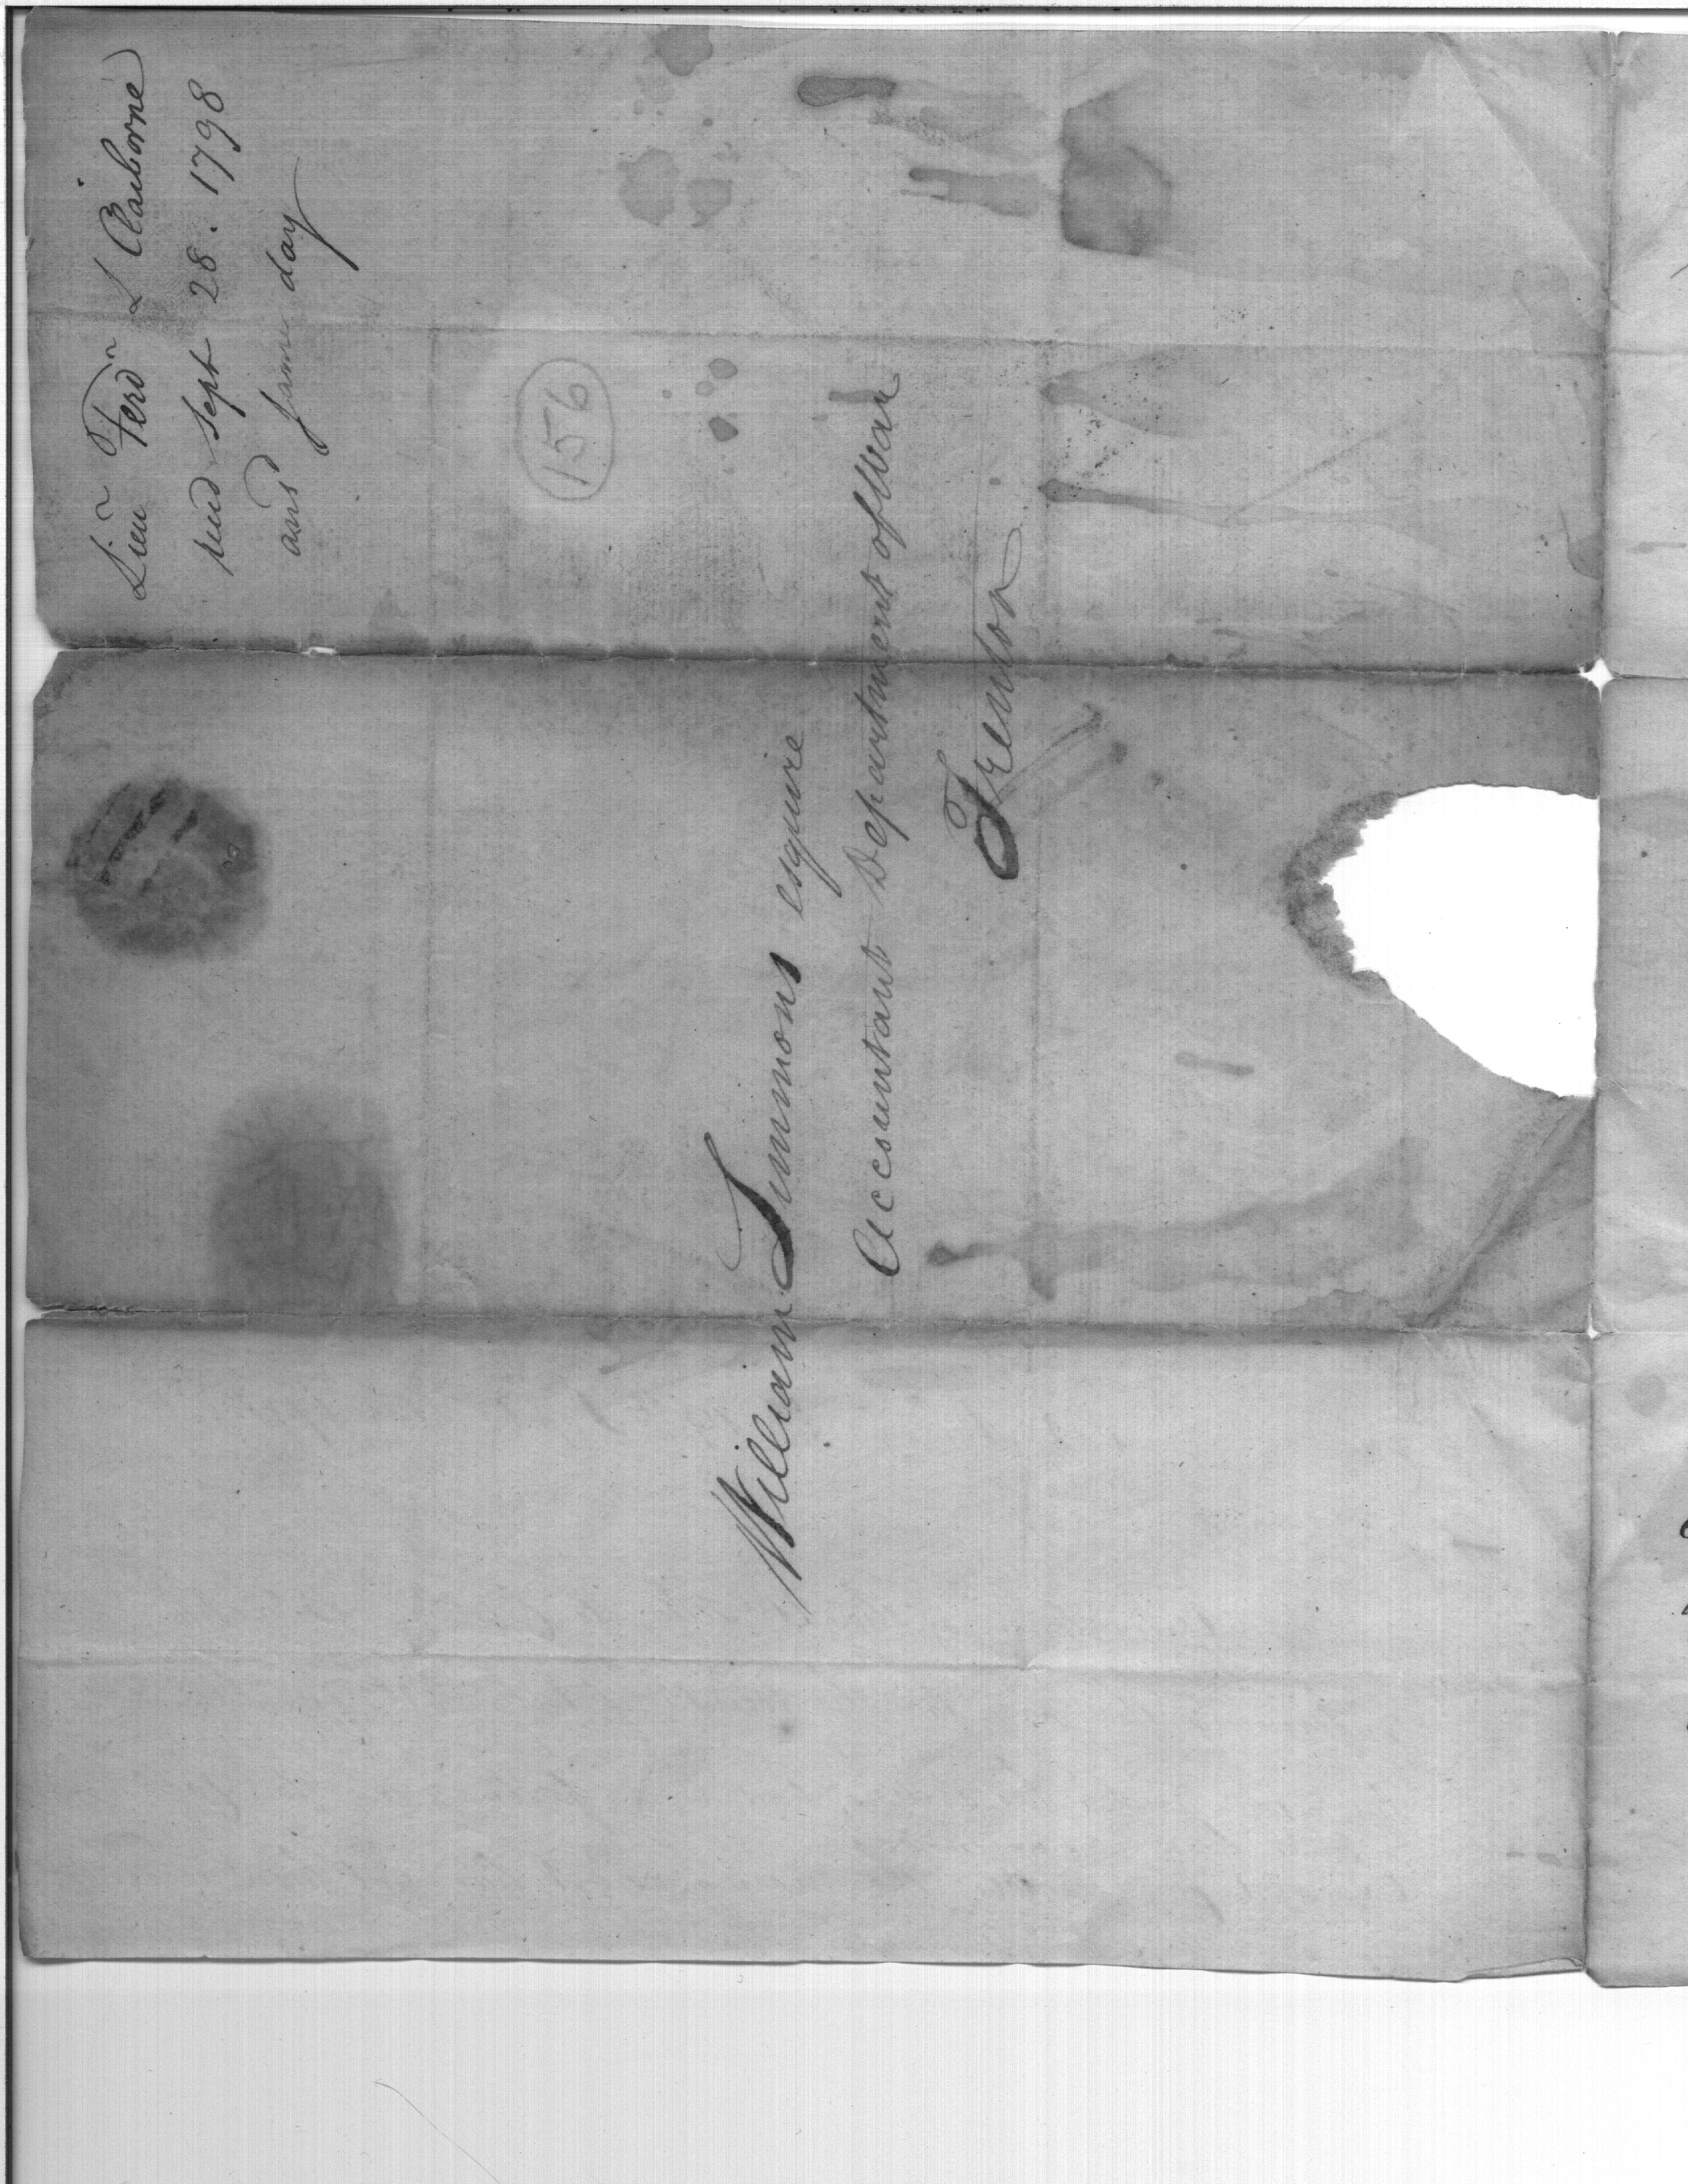 Lieu Ferdn L Claiborne
recd Sept 28. 1798
ansd same day
156
William Simmons esquire
Accountant Department of War
Trenton